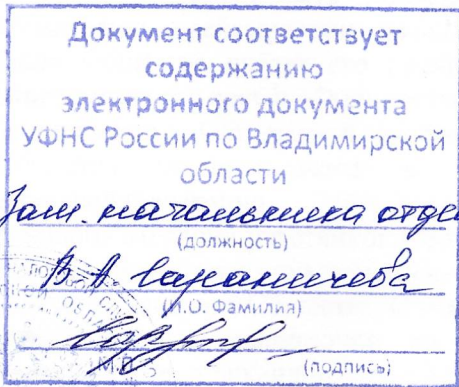 Документ соответствует
содержанию
электронного документа
УФНС России по Владимирской
области
Зам. начальника отде
(должность)
В А
(И.О. Фамилия)
М.П.
(подпись)